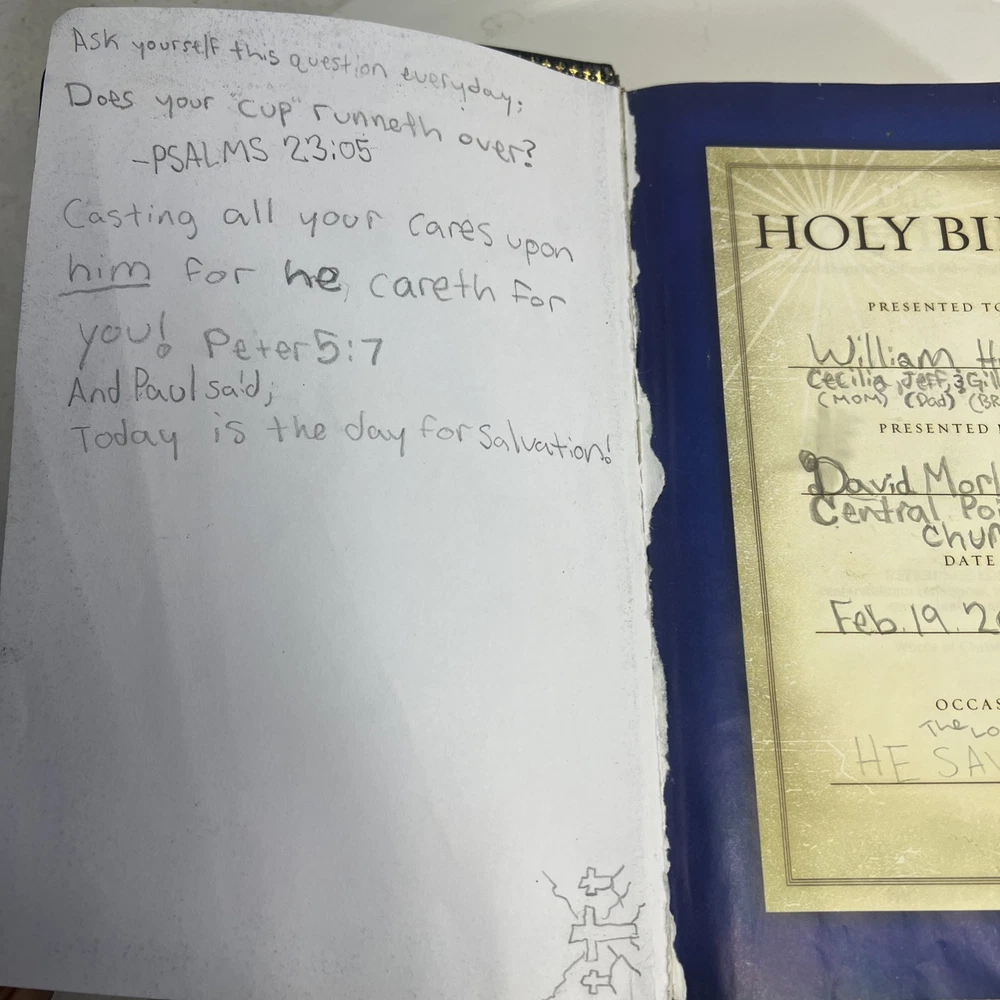 Ask yourself this question everyday;
Does your "cup" runneth over?
-PSALMS 23:05
Casting all your cares upon
him for he, careth for
you! Peter 5:7
And Paul said;
Today is the day for salvation!
HOLY
PRESENTED TO
William
Cecilia, Jeff, &
(MOM) (Dad)
PRESENTED
David
Central
DATE
Feb. 19.
The
HE